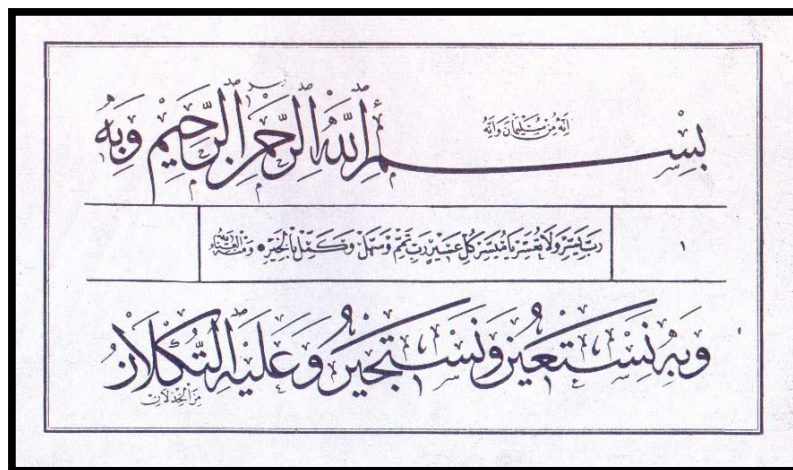 إِنَّهُ مِنْ سُلَيْمَانَ وَإِنَّهُ
بِسْمِ اللّٰهِ الرَّحْمٰنِ الرَّحِيْمِ وَبِهِ
١
رَبِّ يَسِّرْ وَلَا تُعَسِّرْ يَا مُيَسِّرَ كُلِّ عَسِيْرٍ رَبِّ تَمِّمْ وَسَهِّلْ وَكَمِّلْ بِالْخَيْرِ •
وَبِهِ نَسْتَعِيْنُ وَنَسْتَجِيْرُ وَعَلَيْهِ التُّكْلَانُ
مِنَ الْخِذْلَانِ